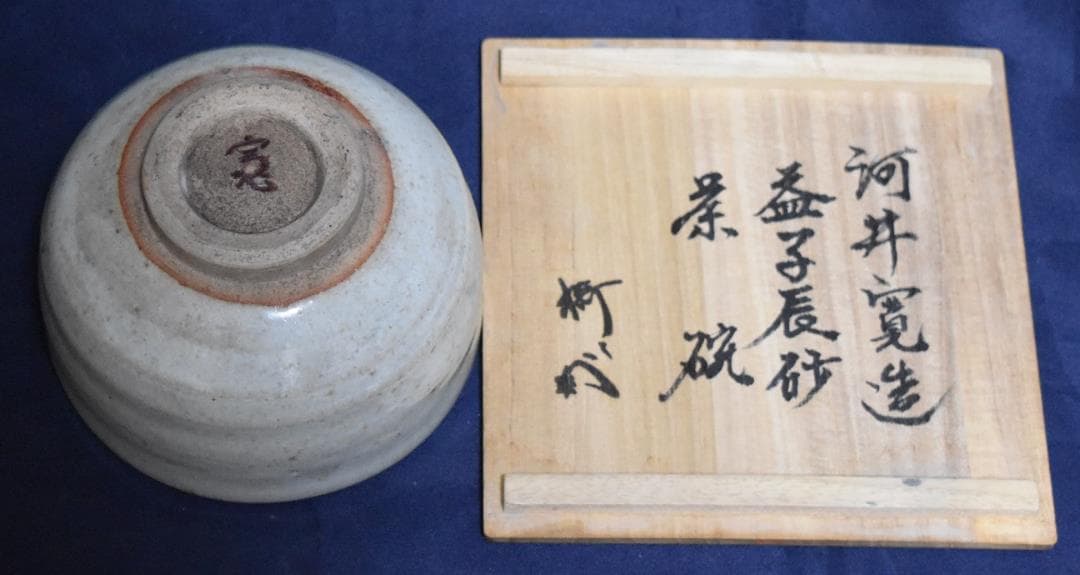 河井寛造
益子辰砂
茶碗
寛